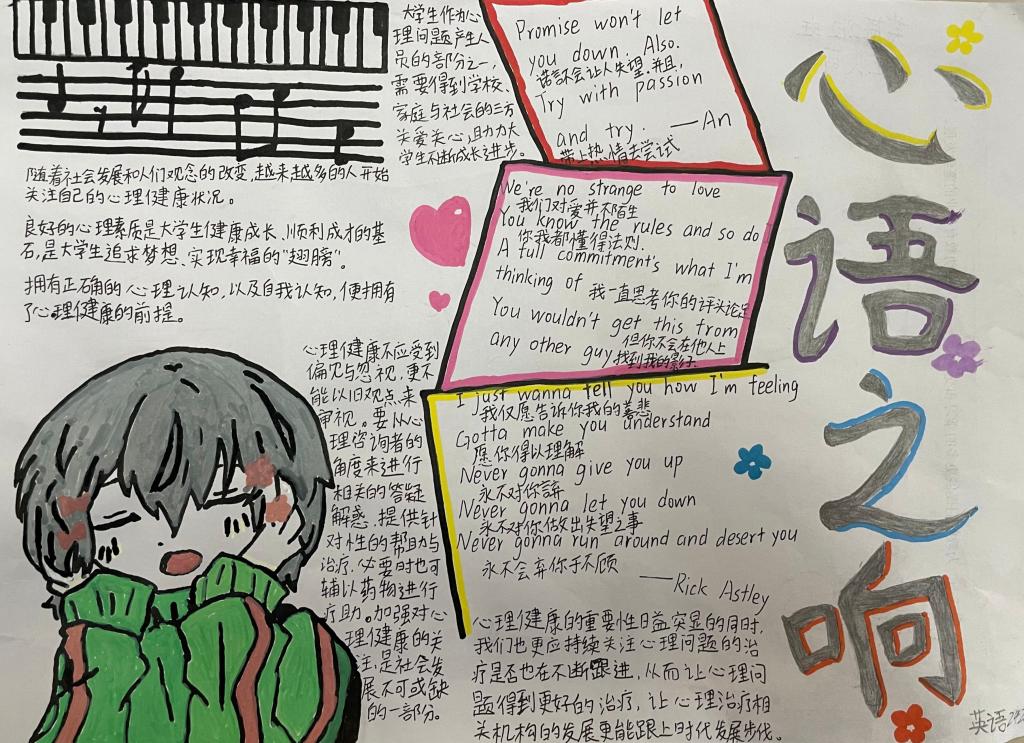 心语之响
大学生作为心
理问题产生人
员的部分之一，
需要得到学校、
家庭与社会的三方
关爱关心，助力大
学生不断成长进步。
随着社会发展和人们观念的改变，越来越多的人开始
关注自己的心理健康状况。
良好的心理素质是大学生健康成长、顺利成才的基
石，是大学生追求梦想、实现幸福的"翅膀"。
拥有正确的心理认知，以及自我认知，便拥有
了心理健康的前提。
心理健康不应受到
偏见与忽视，更不
能以旧观点来
审视。要从心
理咨询者的
角度来进行
相关的答疑
解惑，提供针
对性的帮助与
治疗，必要时也可
辅以药物进行
疗助。加强对心
理健康的关
注，是社会发
展不可或缺
的一部分。
Promise won't let
you down. Also.
诺言不会让人失望，并且，
Try with passion
and try. ——An
带上热情去尝试
We're no strange to love
我们对爱并不陌生
You know the rules and so do
你我都懂得法则.
A full commitment's what I'm
thinking of 我一直思考你的评头论足
You wouldn't get this from
any other guy 但你不会在他人上
找到我的影子.
I just wanna tell you how I'm feeling
我仅愿告诉你我的
Gotta make you understand
愿你得以理解
Never gonna give you up
永不对你
Never gonna let you down
永不对你做出失望之事
Never gonna run around and desert you
永不会弃你于不顾
——Rick Astley
心理健康的重要性日益突显的同时，
我们也更应持续关注心理问题的治
疗是否也在不断跟进，从而让心理问
题得到更好的治疗，让心理治疗相
关机构的发展更能跟上时代发展步伐。
英语